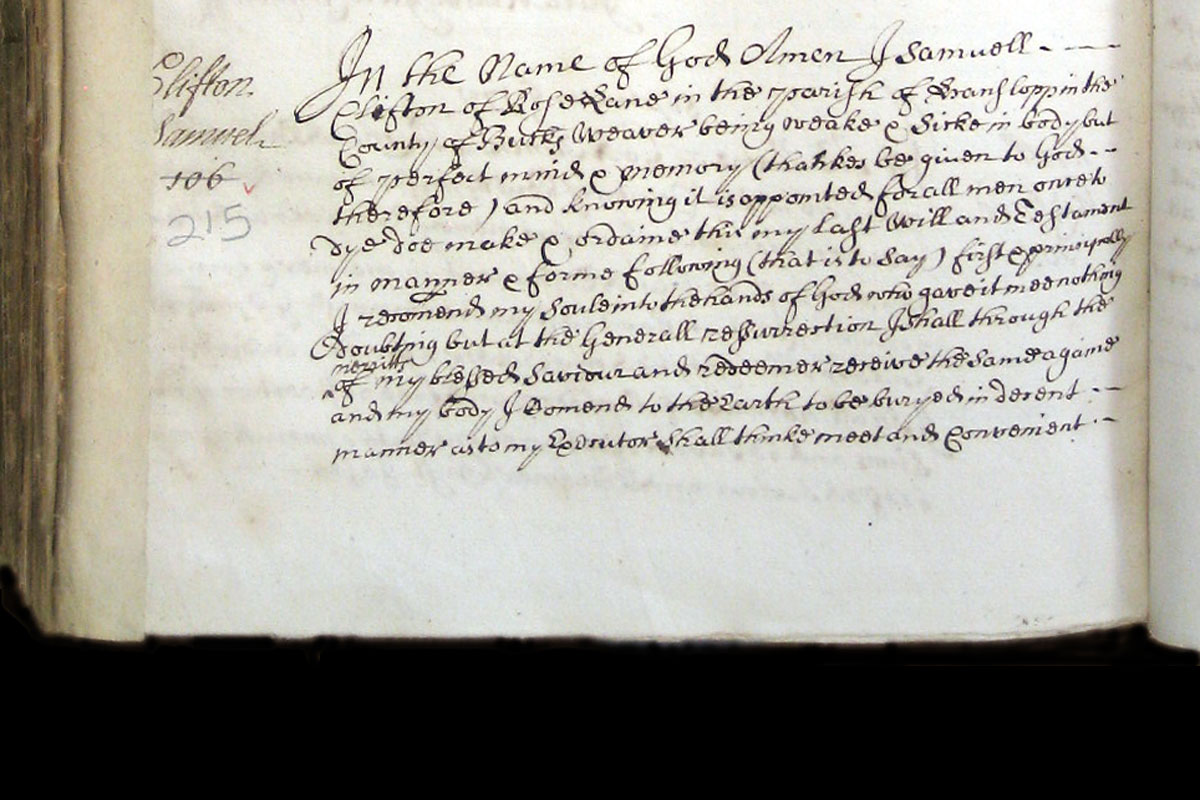 Clifton
Samuel
106
215
In the Name of God Amen I Samuell
Clifton of Rose Lane in the parish of Hanslopp in the
County of Bucks Weaver being weake & Sicke in body but
of perfect mind & memory (thankes be given to God
therefore) and knowing it is appointed for all men once to
dye doe make & ordaine this my last Will and Testament
in manner & forme following (that is to Say) first & principally
I recomend my Soule into the hands of God who gave it mee nothing
doubting but at the Generall ressurrection I shall through the
meritts
of my blessed Saviour and redeemer receive the Same againe
and my body I Comend to the Earth to be buryed in decent
manner as to my Executor shall thinke meet and Convenient